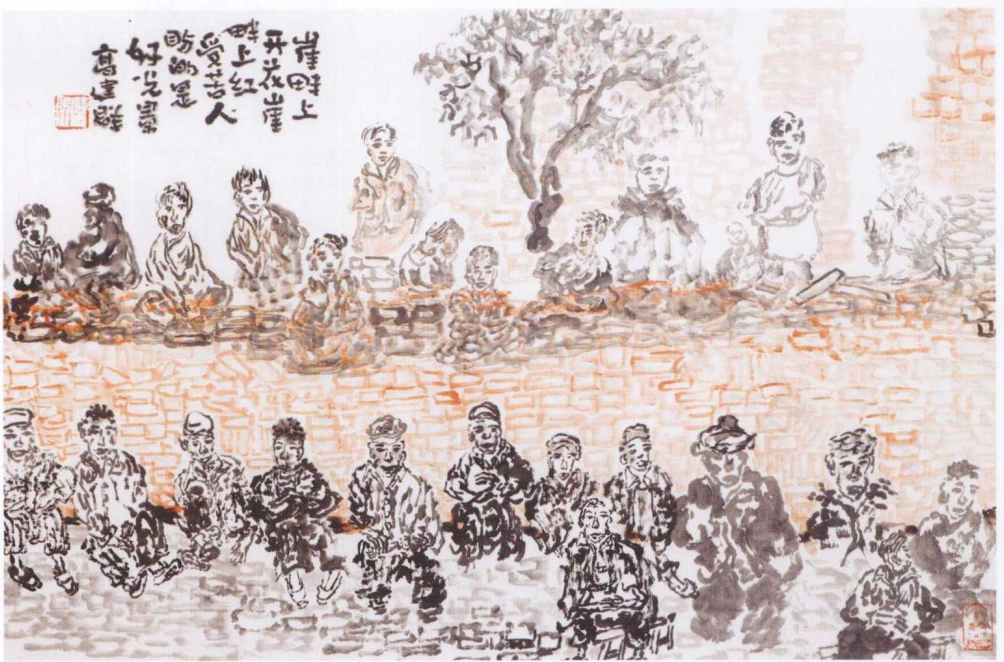 崖畔上
开花崖
畔上红
受苦人
盼的是
好光景
高建群